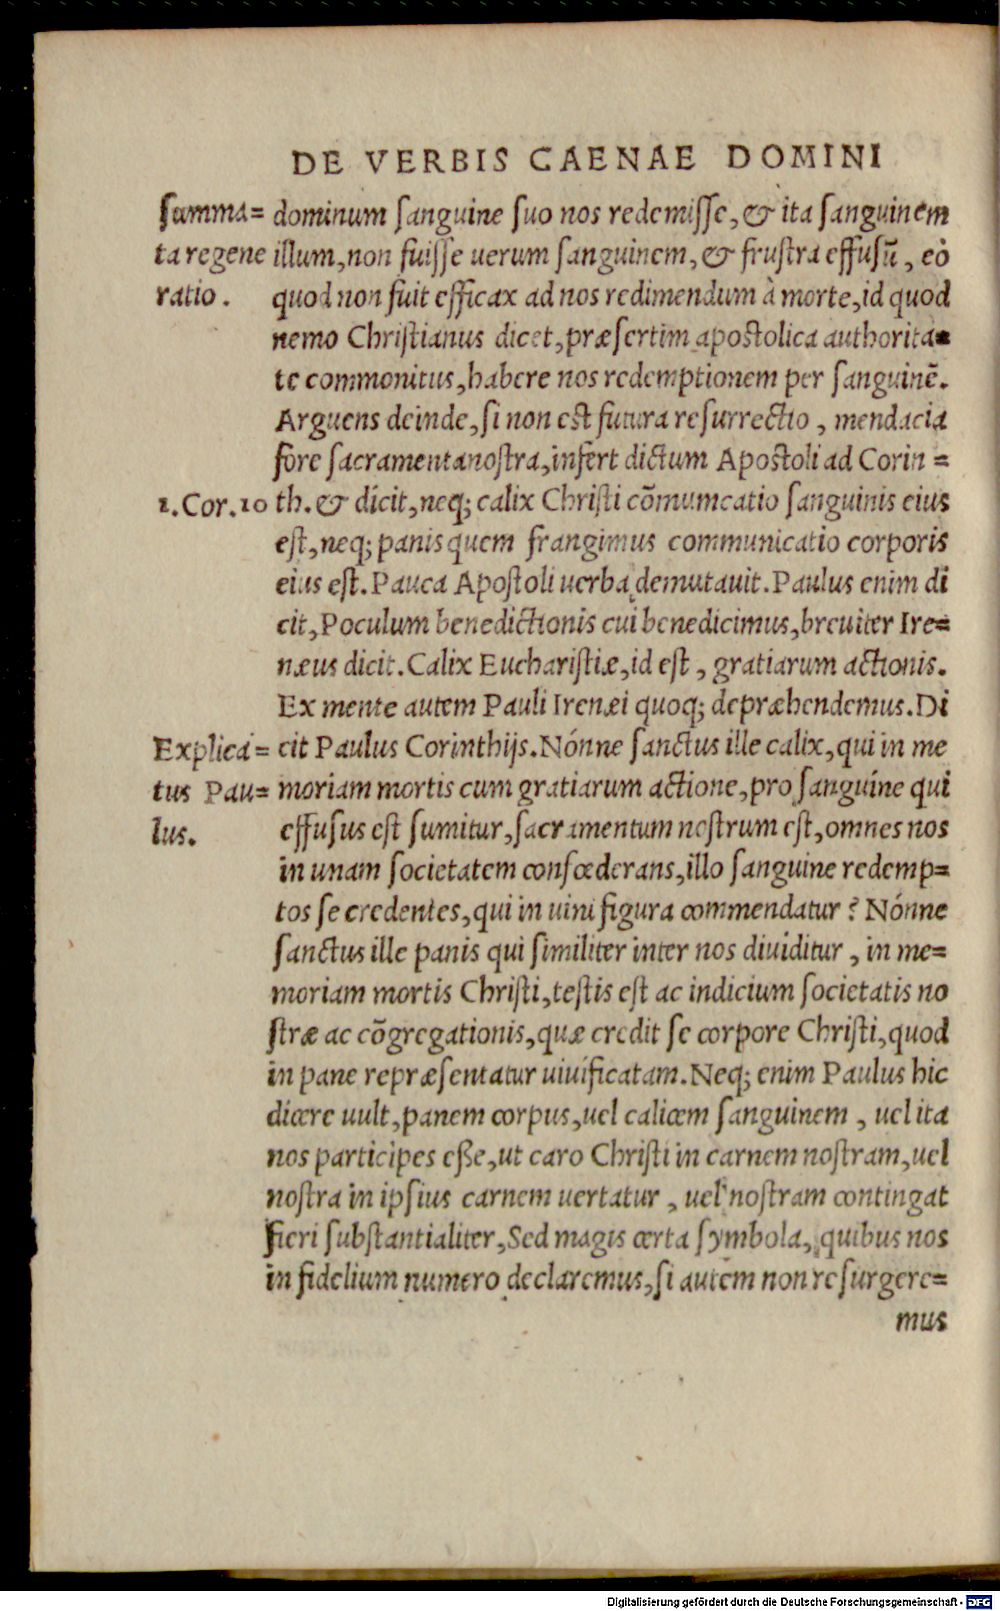 DE VERBIS CAENAE DOMINI
summa= dominum sanguine suo nos redemisse, & ita sanguinem
ta regene illum, non fuisse uerum sanguinem, & frustra effusū, eò
ratio. quod non fuit efficax ad nos redimendum à morte, id quod
nemo Christianus dicet, præsertim apostolica authorita=
te commonitus, habere nos redemptionem per sanguinē.
Arguens deinde, si non est futura resurrectio, mendacia
fore sacramenta nostra, infert dictum Apostoli ad Corin=
1. Cor. 10 th. & dicit, neq; calix Christi cōmunicatio sanguinis eius
est, neq; panis quem frangimus communicatio corporis
eius est. Pauca Apostoli uerba demutauit. Paulus enim di
cit, Poculum benedictionis cui benedicimus, breuiter Ire=
næus dicit. Calix Eucharistiæ, id est, gratiarum actionis.
Ex mente autem Pauli Irenæi quoq; depræhendemus. Di
Explica= cit Paulus Corinthijs. Nónne sanctus ille calix, qui in me
tus Pau= moriam mortis cum gratiarum actione, pro sanguine qui
lus. effusus est sumitur, sacramentum nostrum est, omnes nos
in unam societatem consœderans, illo sanguine redemp=
tos se credentes, qui in uini figura commendatur? Nónne
sanctus ille panis qui similiter inter nos diuiditur, in me=
moriam mortis Christi, testis est ac indicium societatis no
stræ ac cōgregationis, quæ credit se corpore Christi, quod
in pane repræsentatur uiuificatam. Neq; enim Paulus hic
dicere uult, panem corpus, uel calicem sanguinem, uel ita
nos participes eße, ut caro Christi in carnem nostram, uel
nostra in ipsius carnem uertatur, uel nostram contingat
fieri substantialiter, Sed magis certa symbola, quibus nos
in fidelium numero declaremus, si autem non resurgere=
mus
Digitalisierung gefördert durch die Deutsche Forschungsgemeinschaft - DFG